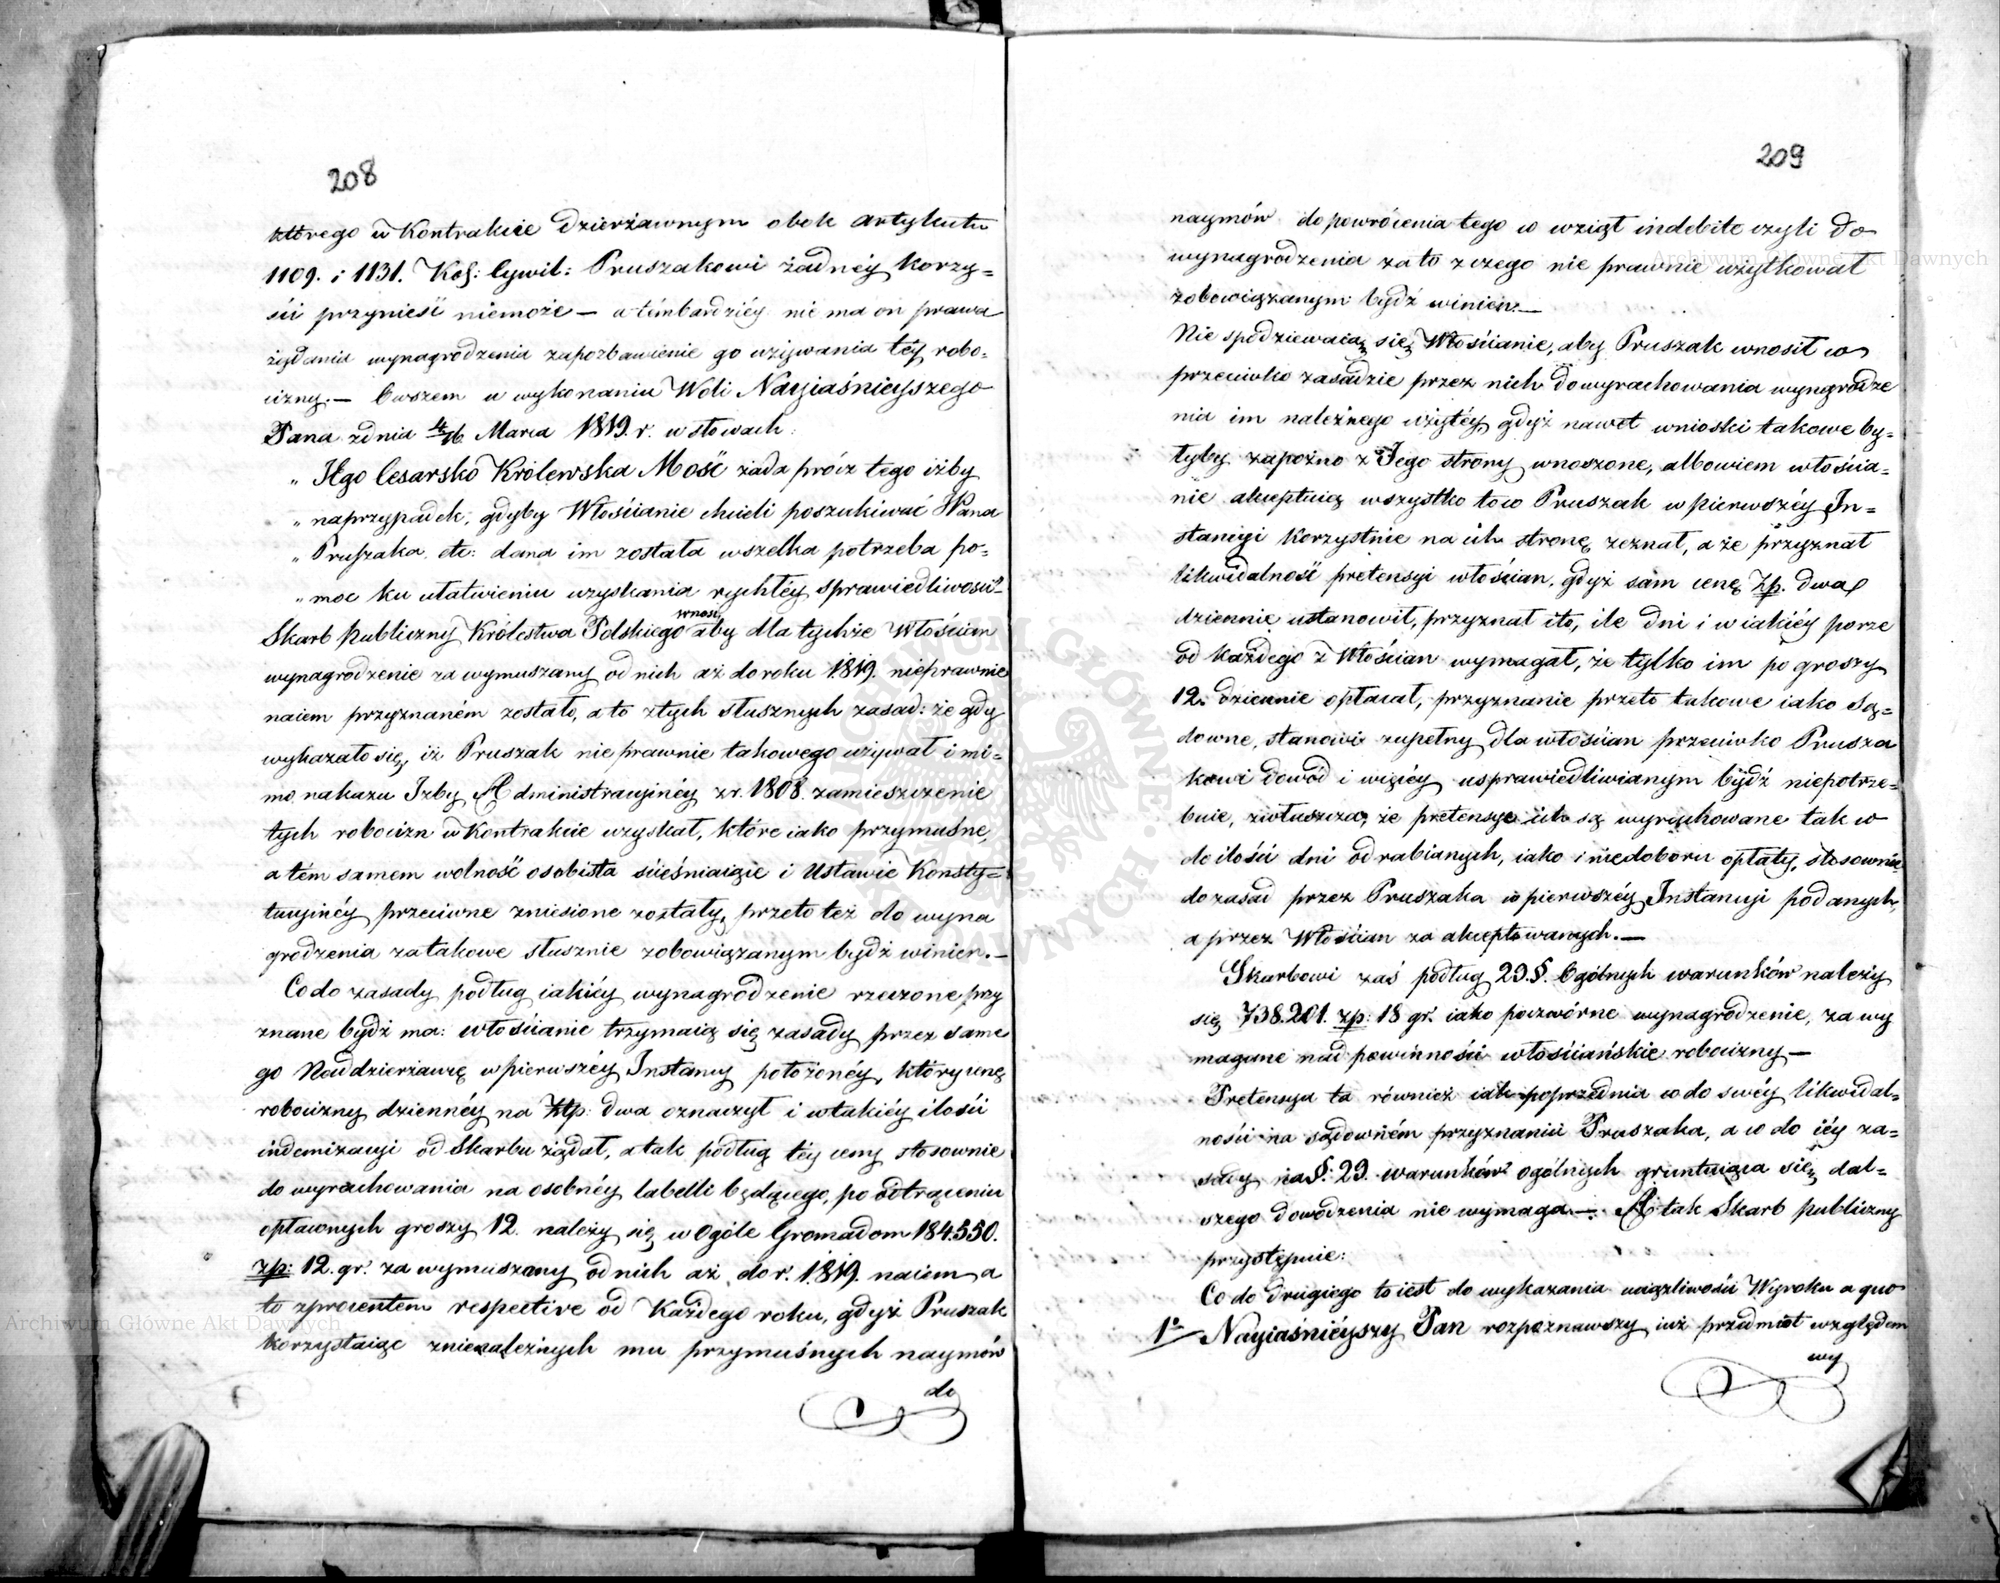 208
którego w Kontrakcie Dzierżawnym obok artykułu
1109. i 1131. Kod: Cywil: Pruszakowi żadnéy korzy=
ści przynieść niemoże — a témbardziéy nie ma on prawa
żądania wynagrodzenia zapozbawienie go używania téy robo=
cizny. — Owszem w wykonaniu Woli Nayjaśnieyszego
Pana zdnia 4/16 Marca 1819. r. w słowach:
„ Jego Cesarsko Królewska Mość żąda prócz tego iżby
„ naprzypadek, gdyby Włościanie chcieli poszukiwać JPana
„ Pruszaka etc: dana im została wszelka potrzeba po=
„ moc ku ułatwieniu uzyskania rychłéy sprawiedliwości"
wnosi
Skarb Publiczny Królestwa Polskiego aby dla tychże Włościan
wynagrodzenie za wymuszany od nich aż do roku 1819. nieprawnie
naiem przyznaném zostało, a to z tych słusznych zasad: że gdy
wykazało się, iż Pruszak nie prawnie takowego używał i mi=
mo nakazu Izby Administracyinéy z r. 1808. zamieszczenie
tych robocizn w Kontrakcie uzyskał, które iako przymuśne,
a tém samem wolność osobistą ścieśniaiące i Ustawie Konsty=
tucyinéy przeciwne zniesione zostały, przeto też do wyna
grodzenia za takowe słusznie zobowiązanym bydź winien. —
Co do zasady podług iakiéy wynagrodzenie rzeczone przy
znane bydź ma: włościanie trzymaią się zasady przez same
go Naddzierżawcę w pierwszéy Instancyi położonéy, który cenę
robocizny dziennéy na Złp. dwa oznaczył i w takiéy ilości
indemnizacyi od Skarbu żądał, a tak podług téy ceny stosownie
do wyrachowania na osobnéy tabelli będącego, po odtrąceniu
opłaconych groszy 12. należy się w ogóle Gromadom 184.550.
złp: 12. gr. za wymuszany od nich aż do r. 1819. naiem a
to z procentem respective od Każdego roku, gdyż Pruszak
korzystaiąc z nienależnych mu przymuśnych naymów
do
209
naymów do powrócenia tego co wziął indebite czyli do
wynagrodzenia za to z czego nie prawnie użytkował
zobowiązanym bydź winien. —
Nie spodziewaią się Włościanie, aby Pruszak wnosił co
przeciwko zasadzie przez nich do wyrachowania wynagrodze
nia im należnego użytéy, gdyż nawet wnioski takowe by=
łyby zapóźno z Jego strony wnoszone, albowiem włościa=
nie akceptuią wszystko to co Pruszak w pierwszéy In=
stancyi Korzystnie na ich stronę zeznał, a że przyznał
likwidalność pretensyi włościan, gdyż sam cenę Złp. dwa
dziennie ustanowił, przyznał i to, ile dni i w iakiéy porze
od Każdego z Włościan wymagał, że tylko im po groszy
12. dziennie opłacał, przyznanie przeto takowe iako Są=
downe, stanowi zupełny dla włościan przeciwko Prusza
kowi dowód i więcéy usprawiedliwianym bydź niepotrze=
buie, zwłaszcza, że pretensye ich są wyrachowane tak co
do ilości dni odrabianych, iako i niedoboru opłaty, stosownie
do zasad przez Pruszaka w pierwszéy Instancyi podanych,
a przez Włościan za akceptowanych. —
Skarbowi zaś podług 29. §. Ogólnych warunków należy
się 738.201. złp: 18 gr. iako poczwórne wynagrodzenie, za wy
magane nad powinności włościańskie robocizny —
Pretensya ta również iak poprzednia co do swéy likwidal=
ności na sądowném przyznaniu Pruszaka, a co do iéy za=
sady na §. 29. warunków ogólnych gruntuiąca się dal=
szego dowodzenia nie wymaga. — A tak Skarb publiczny
przystępuie:
Co do drugiego to iest do wykazania uciążliwości Wyroku a quo
1o Nayiaśniéyszy Pan rozpoznawszy iuż przedmiot względem
wy
Archiwum Główne Akt Dawnych
Archiwum Główne Akt Dawnych